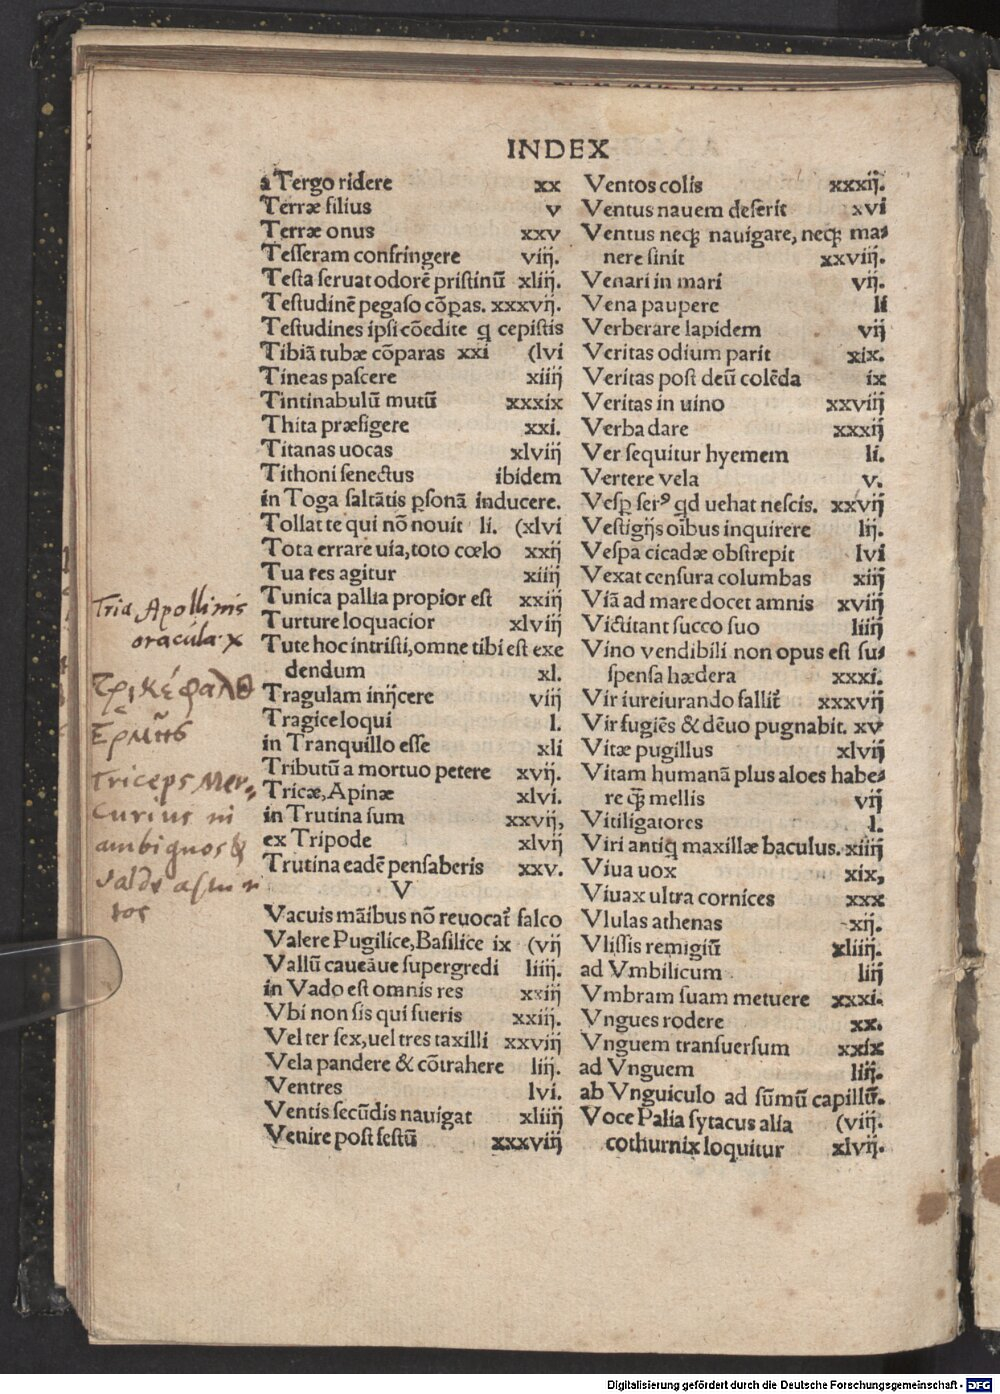 INDEX
a Tergo ridere xx
Terræ filius v
Terræ onus xxv
Tesseram confringere viij.
Testa seruat odorẽ pristinũ xliij.
Testudinẽ pegaso cõꝑas. xxxvij.
Testudines ipsi cõedite q cepistis
Tibiã tubæ cõparas xxi (lvi
Tineas pascere xiiij
Tintinabulũ mutũ xxxix
Thita præfigere xxi.
Titanas uocas xlviij
Tithoni senectus ibidem
in Toga saltãtis ꝑsonã inducere.
Tollat te qui nõ nouit li. (xlvi
Tota errare uia, toto cœlo xxij
Tua res agitur xiiij
Tunica pallia propior est xxiij
Turture loquacior xlviij
Tute hoc intristi, omne tibi est exe
dendum xl.
Tragulam inijcere viij
Tragice loqui l.
in Tranquillo esse xli
Tributũ a mortuo petere xvij.
Tricæ, Apinæ xlvi.
in Trutina sum xxvij,
ex Tripode xlvij
Trutina eadẽ pensaberis xxv.
V
Vacuis mãibus nõ reuocat̃ falco
Valere Pugilice, Basilice ix (vij
Vallũ caueãue supergredi liiij.
in Vado est omnis res xxiij
Vbi non sis qui fueris xxiij.
Vel ter sex, uel tres taxilli xxviij
Vela pandere & cõtrahere liij.
Ventres lvi.
Ventis secũdis nauigat xliiij
Venire post festũ xxxviij
Ventos colis xxxij.
Ventus nauem deserit xvi
Ventus neqꝫ nauigare, neqꝫ ma⸗
nere sinit xxviij.
Venari in mari vij.
Vena paupere li
Verberare lapidem vij
Veritas odium parit xix.
Veritas post deũ colẽda ix
Veritas in uino xxviij
Verba dare xxxij
Ver sequitur hyemem li.
Vertere vela v.
Vesꝑ serꝰ qd uehat nescis. xxvij
Vestigijs oĩbus inquirere lij.
Vespa cicadæ obstrepit lvi
Vexat censura columbas xiij
Viã ad mare docet amnis xviij
Victitant succo suo liiij
Vino vendibili non opus est su⸗
spensa hædera xxxi.
Vir iureiurando fallit̃ xxxvij
Vir fugiẽs & dẽuo pugnabit. xv
Vitæ pugillus xlvij
Vitam humanã plus aloes habe⸗
re qꝫ̃ mellis vij
Vitiligatores l.
Viri antiq maxillæ baculus. xiiij
Viua uox xix,
Viuax ultra cornices xxx
Vlulas athenas xij.
Vlissis remigiũ xliiij.
ad Vmbilicum liij
Vmbram suam metuere xxxi.
Vngues rodere xx.
Vnguem transuersum xxix
ad Vnguem liij.
ab Vnguiculo ad sũmũ capillũ.
Voce Palia sytacus alia (viij.
cothurnix loquitur xlvij.
Tria Apollinis
oracula. x
Τρικέφαλος
Ἑρμῆς
Triceps Mer⸗
curius in
ambiguos &
valde astu
tos
Digitalisierung gefördert durch die Deutsche Forschungsgemeinschaft - DFG